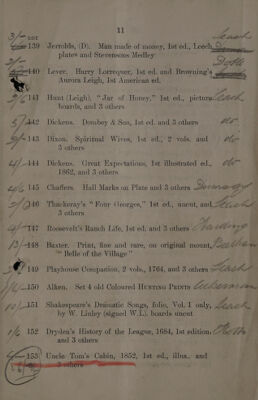 11
LOT
139 Jerrolds, (D). Man made of money, 1st ed., Leech
plates and Stevensons Medley
440 Lever. Harry Lorrequer, 1st ed. and Browning's
Aurora Leigh, 1st American ed.
141 Hunt (Leigh), "Jar of Honey," 1st ed., picture
boards, and 3 others
442 Dickens. Dombey & Son, 1st ed. and 3 others do
143 Dixon. Spiritual Wives, 1st ed., 2 vols. and do
3 others
4/- 144 Dickens. Great Expectations, 1st illustrated ed., do
1862, and 3 others
4/6 145 Chaffers. Hall Marks on Plate and 3 others
146 Thackeray's "Four Georges," 1st ed., uncut, and
3 others
4/- 147 Roosevelt's Ranch Life, 1st ed. and 3 others
13/- 148 Baxter. Print, fine and rare, on original mount,
"Belle of the Village"
149 Playhouse Companion, 2 vols., 1764, and 3 others
150 Alken. Set 4 old Coloured HUNTING PRINTS
151 Shakespeare's Dramatic Songs, folio, Vol. I only,
by W. Linley (signed W.L.), boards uncut
1/6 152 Dryden's History of the League, 1684, 1st edition,
and 3 others
153 Uncle Tom's Cabin, 1852, 1st ed., illus., and
3 others